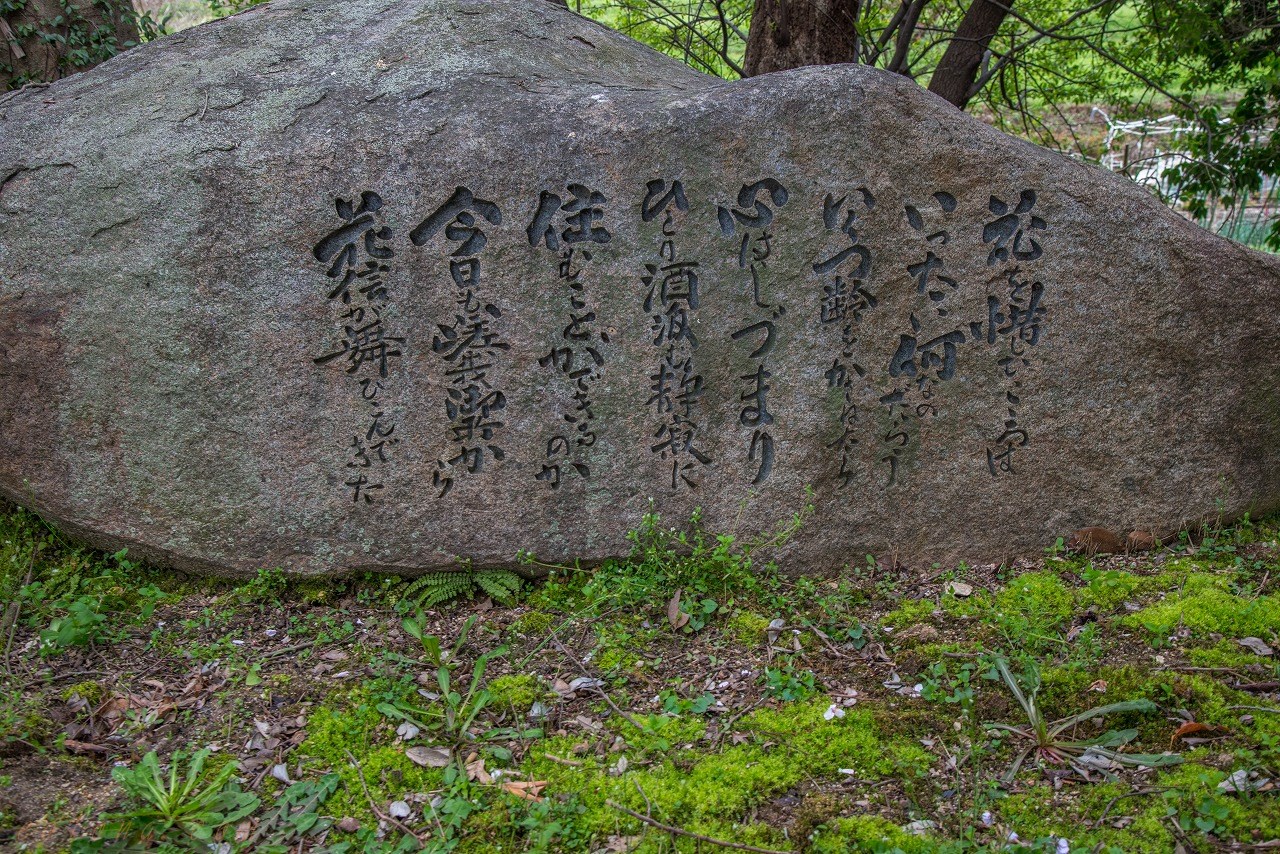 花を惜しむこゝろは
いったい何なのだらう
いくつ齢をかさねたら
心はしづまり
ひとり酒汲む静寂に
住むことができるのか
今日も嵯峨御室から
花信が舞ひこんできた